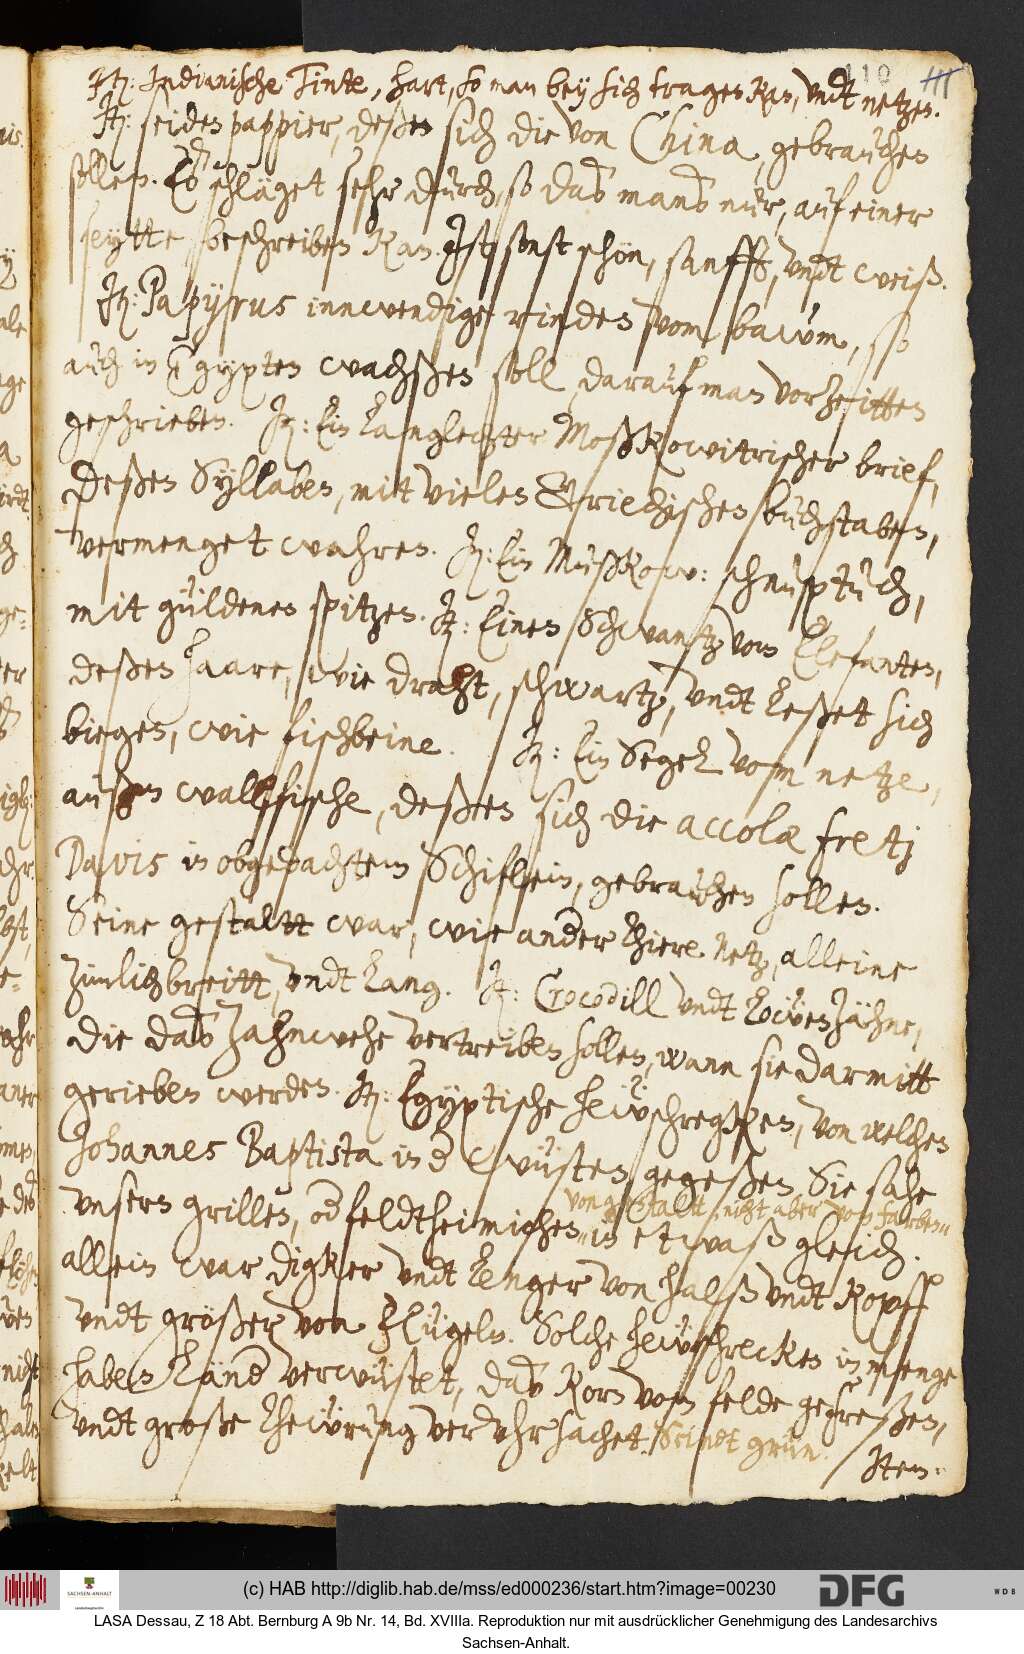 110 111
Jt: Indianische Tinte, hart, so man bey sich tragen kan, undt netzen.
Jt: seiden pappier, deßen sich die von China, gebrauchen
sollen. Es schläget sehr durch, so daß mans nur, auf einer
seytte beschreiben kan. Ist sonst schön, sanfft, undt weiß.
Jt: Papyrus innwendige rinden vom bawm, so
auch in Egypten wachßen soll, darauf man vorzeitten
geschrieben. Jt: Ein langlechter Moßkowitrischer brief,
deßen Syllaben, mitt vielen Griechischen buchstaben,
vermenget wahren. Jt: Ein Mußkow: schnuptuch,
mit güldenen spitzen. Jt: Einen Schwantz vom Elefanten,
deßen haare, wie draht, schwartz, undt leßet sich
biegen, wie fischbeine. Jt: Ein Segel vom netze,
außm wallfische, deßen sich die accolæ fretj
Davis in obgedachtem Schifflein, gebrauchen sollen.
Seine gestaltt war, wie ander thiere netz, alleine
zimlich breitt, undt lang. Jt: Crocodill undt Löwen Zähne,
die daß zahnwehe vertreiben sollen, wann sie darmitt
gerieben werden. Jt: Egyptische hewschregken, von welchen
Johannes Baptista in der wüsten gegeßen. Sie sahe
von gestaltt, nicht aber von farben
unsern grillen, oder feldtheimichen in etwaß gleich.
allein war digker undt lenger von halß undt kopff
undt größer von flügeln. Solche hewschrecken in menge
haben Länder verwüstet, das korn vom felde gefreßen,
undt große thewrung veruhrsachet. Seindt grün.
Item:
(c) HAB http://diglib.hab.de/mss/ed000236/start.htm?image=00230
SACHSEN-ANHALT
DFG
WDB
LASA Dessau, Z 18 Abt. Bernburg A 9b Nr. 14, Bd. XVIIIa. Reproduktion nur mit ausdrücklicher Genehmigung des Landesarchivs
Sachsen-Anhalt.